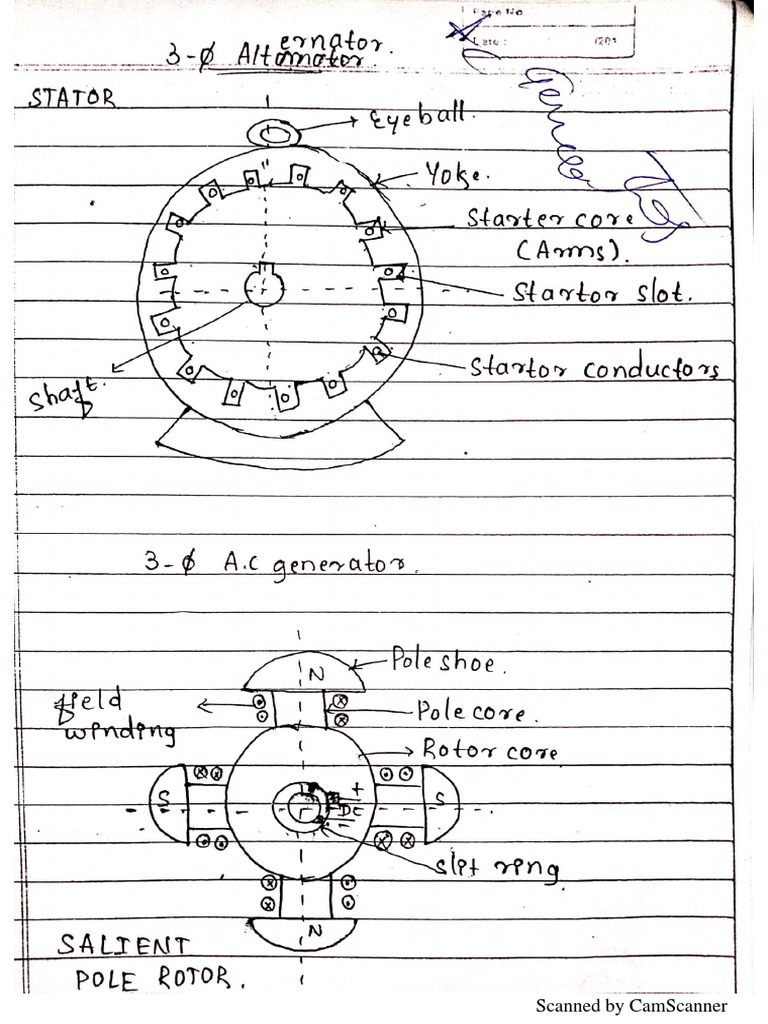 Page No
Date : /201
ernator.
3-ϕ Altomator.
STATOR
Eyeball.
Yoke.
Starter core
(Arms).
Startor slot.
Startor conductors
Shaft.
3-ϕ A.C generator.
N
Pole shoe.
field
winding
Pole core.
Rotor core
S
+
DC
-
S
slit ring
N
SALIENT
POLE ROTOR.
Scanned by CamScanner